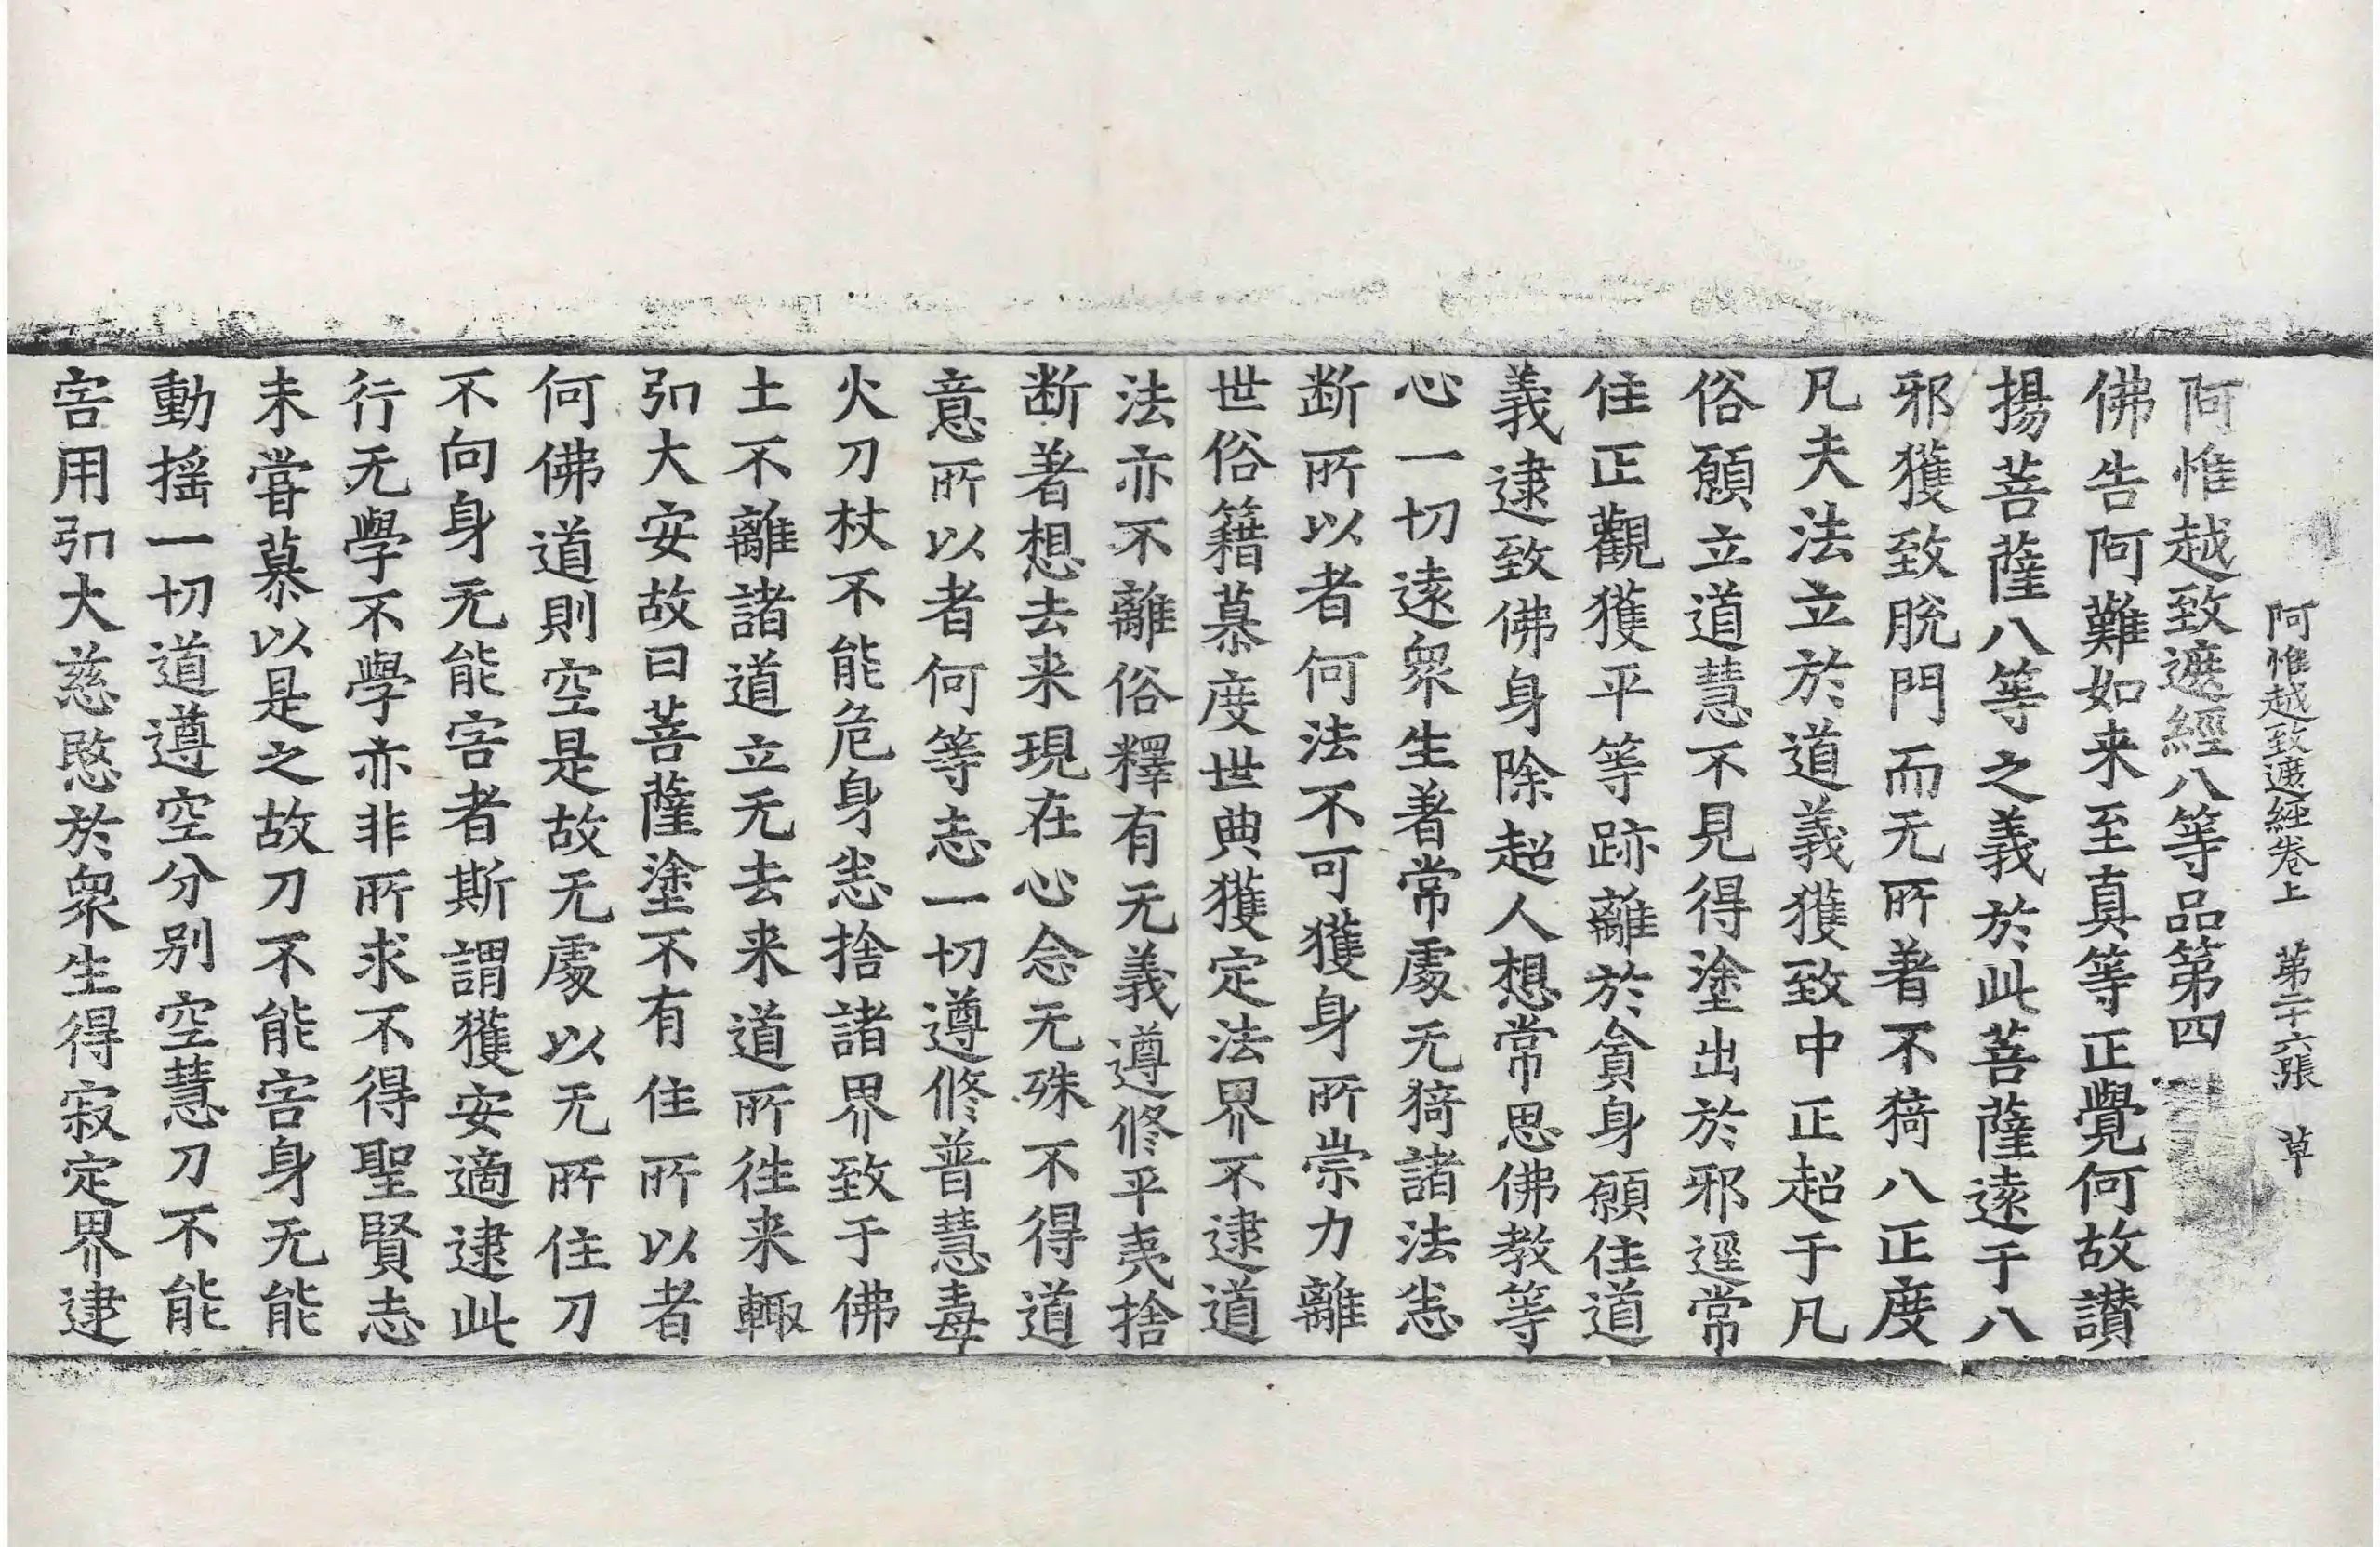 阿惟越致遮經卷上　第二十六張　草
阿惟越致遮經八等品第四
佛告阿難如来至真等正覺何故讃
揚菩薩八等之義於此菩薩遠于八
邪獲致脫門而无所著不猗八正度
凡夫法立於道義獲致中正超于凡
俗願立道慧不見得塗出於邪逕常
住正觀獲平等跡離於貪身願住道
義逮致佛身除超人想常思佛教等
心一切遠衆生著常處无猗諸法恙
断所以者何法不可獲身所崇力離
世俗籍慕度世典獲定法界不逮道
法亦不離俗釋有无義遵修平夷捨
断著想去来現在心念无殊不得道
意所以者何等志一切遵修普慧毒
火刀杖不能危身恙捨諸界致于佛
土不離諸道立无去来道所往来輙
引大安故曰菩薩塗不有住所以者
何佛道則空是故无處以无所住刀
不向身无能害者斯謂獲安適逮此
行无學不學亦非所求不得聖賢志
未嘗慕以是之故刀不能害身无能
動揺一切道遵空分别空慧刀不能
害用引大慈愍於衆生得寂定界逮